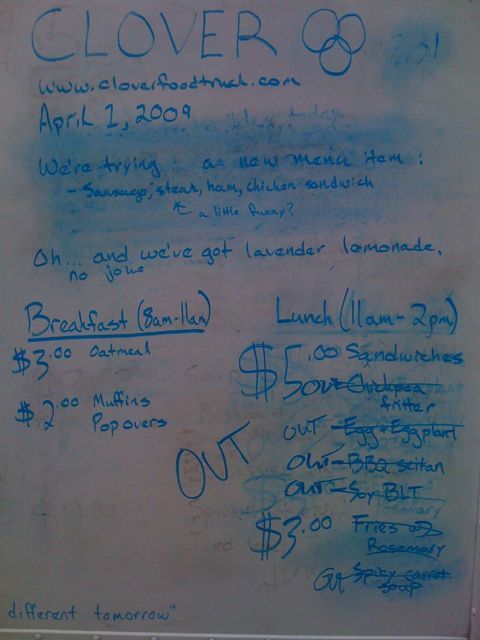 CLOVER
www.cloverfoodtruck.com
April 1, 2009
We're trying a new menu item:
- Sausage, steak, ham, chicken sandwich
a little funny?
Oh... and we've got lavender lemonade.
no joke
Breakfast (8am-11am)
$3.00 Oatmeal
$2.00 Muffins
Popovers
Lunch (11am-2pm)
$5.00 Sandwiches
OUT Chickpea
fritter
OUT - Egg + Eggplant
OUT - BBQ seitan
OUT - Soy BLT
OUT
$3.00 Fries w/
Rosemary
OUT Spicy carrot
soup
different tomorrow"